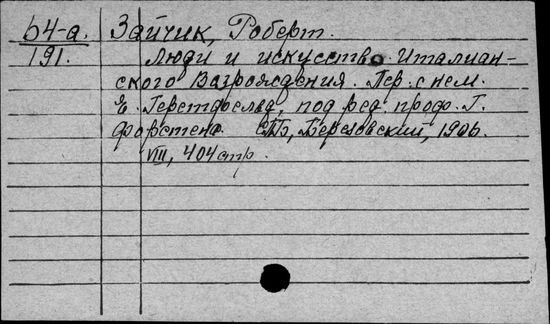 64-а. Зайчик, Роберт.
191. Люди и искусство Италиан-
ского Возрождения. Пер. с нем.
Е. Герстфельд, под ред. проф. Г.
Форстена. СПБ, Березовский, 1906.
VIII, 404 стр.